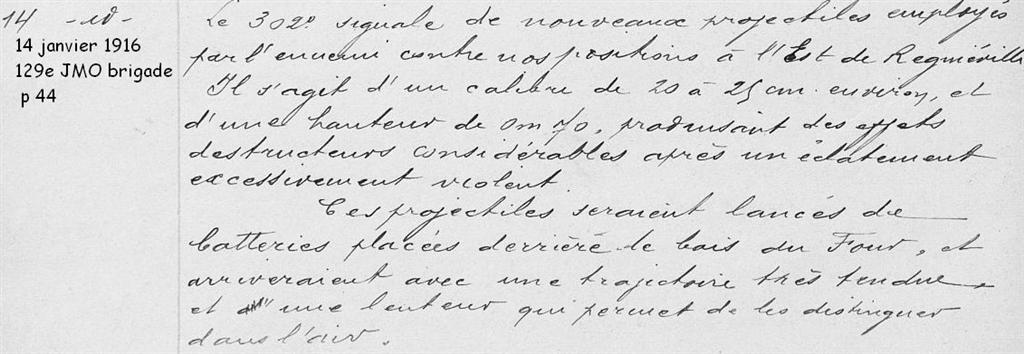 14 -id-
14 janvier 1916
129e JMO brigade
p 44
Le 302e signale de nouveaux projectiles employés
par l'ennemi contre nos positions à l'Est de Regniéville
Il s'agit d'un calibre de 20 à 25 cm. environ, et
d'une hauteur de 0m70, produisant des effets
destructeurs considérables après un éclatement
excessivement violent.
Ces projectiles seraient lancés de
batteries placées derrière le bois du Four, et
arriveraient avec une trajectoire très tendue,
et une lenteur qui permet de les distinguer
dans l'air.